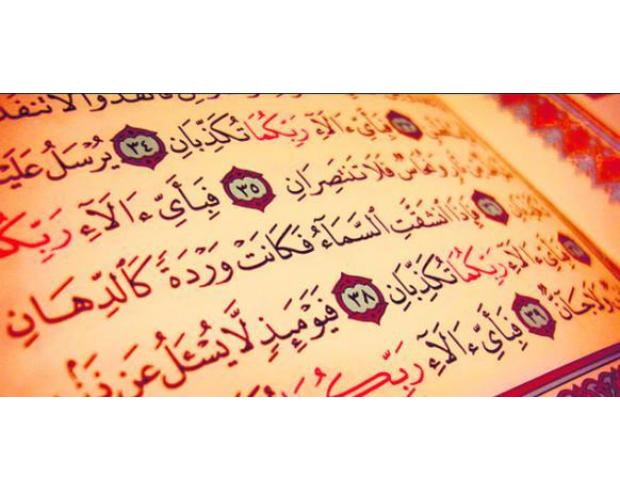 فَانفُذُوا۟ لَا تَنفُذ
فَبِأَىِّ ءَالَآءِ رَبِّكُمَا تُكَذِّبَانِ ٣٤ يُرْسَلُ عَلَيْ
وَنُحَاسٌ فَلَا تَنتَصِرَانِ ٣٥ فَبِأَىِّ ءَالَآءِ رَبِّك
فَإِذَا ٱنشَقَّتِ ٱلسَّمَآءُ فَكَانَتْ وَرْدَةً كَٱلدِّهَانِ
فَبِأَىِّ ءَالَآءِ رَبِّكُمَا تُكَذِّبَانِ ٣٨ فَيَوْمَئِذٍ لَّا يُسْـَٔلُ عَن ذَنۢ
وَلَا جَآنٌّ ٣٩ فَبِأَىِّ ءَالَآءِ رَبِّكُمَا